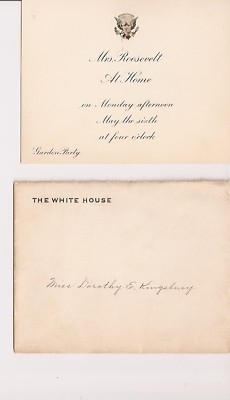 Mrs. Roosevelt
At Home
on Monday afternoon
May the sixth
at four o'clock
Garden Party
THE WHITE HOUSE
Miss Dorothy E. Kingsbury